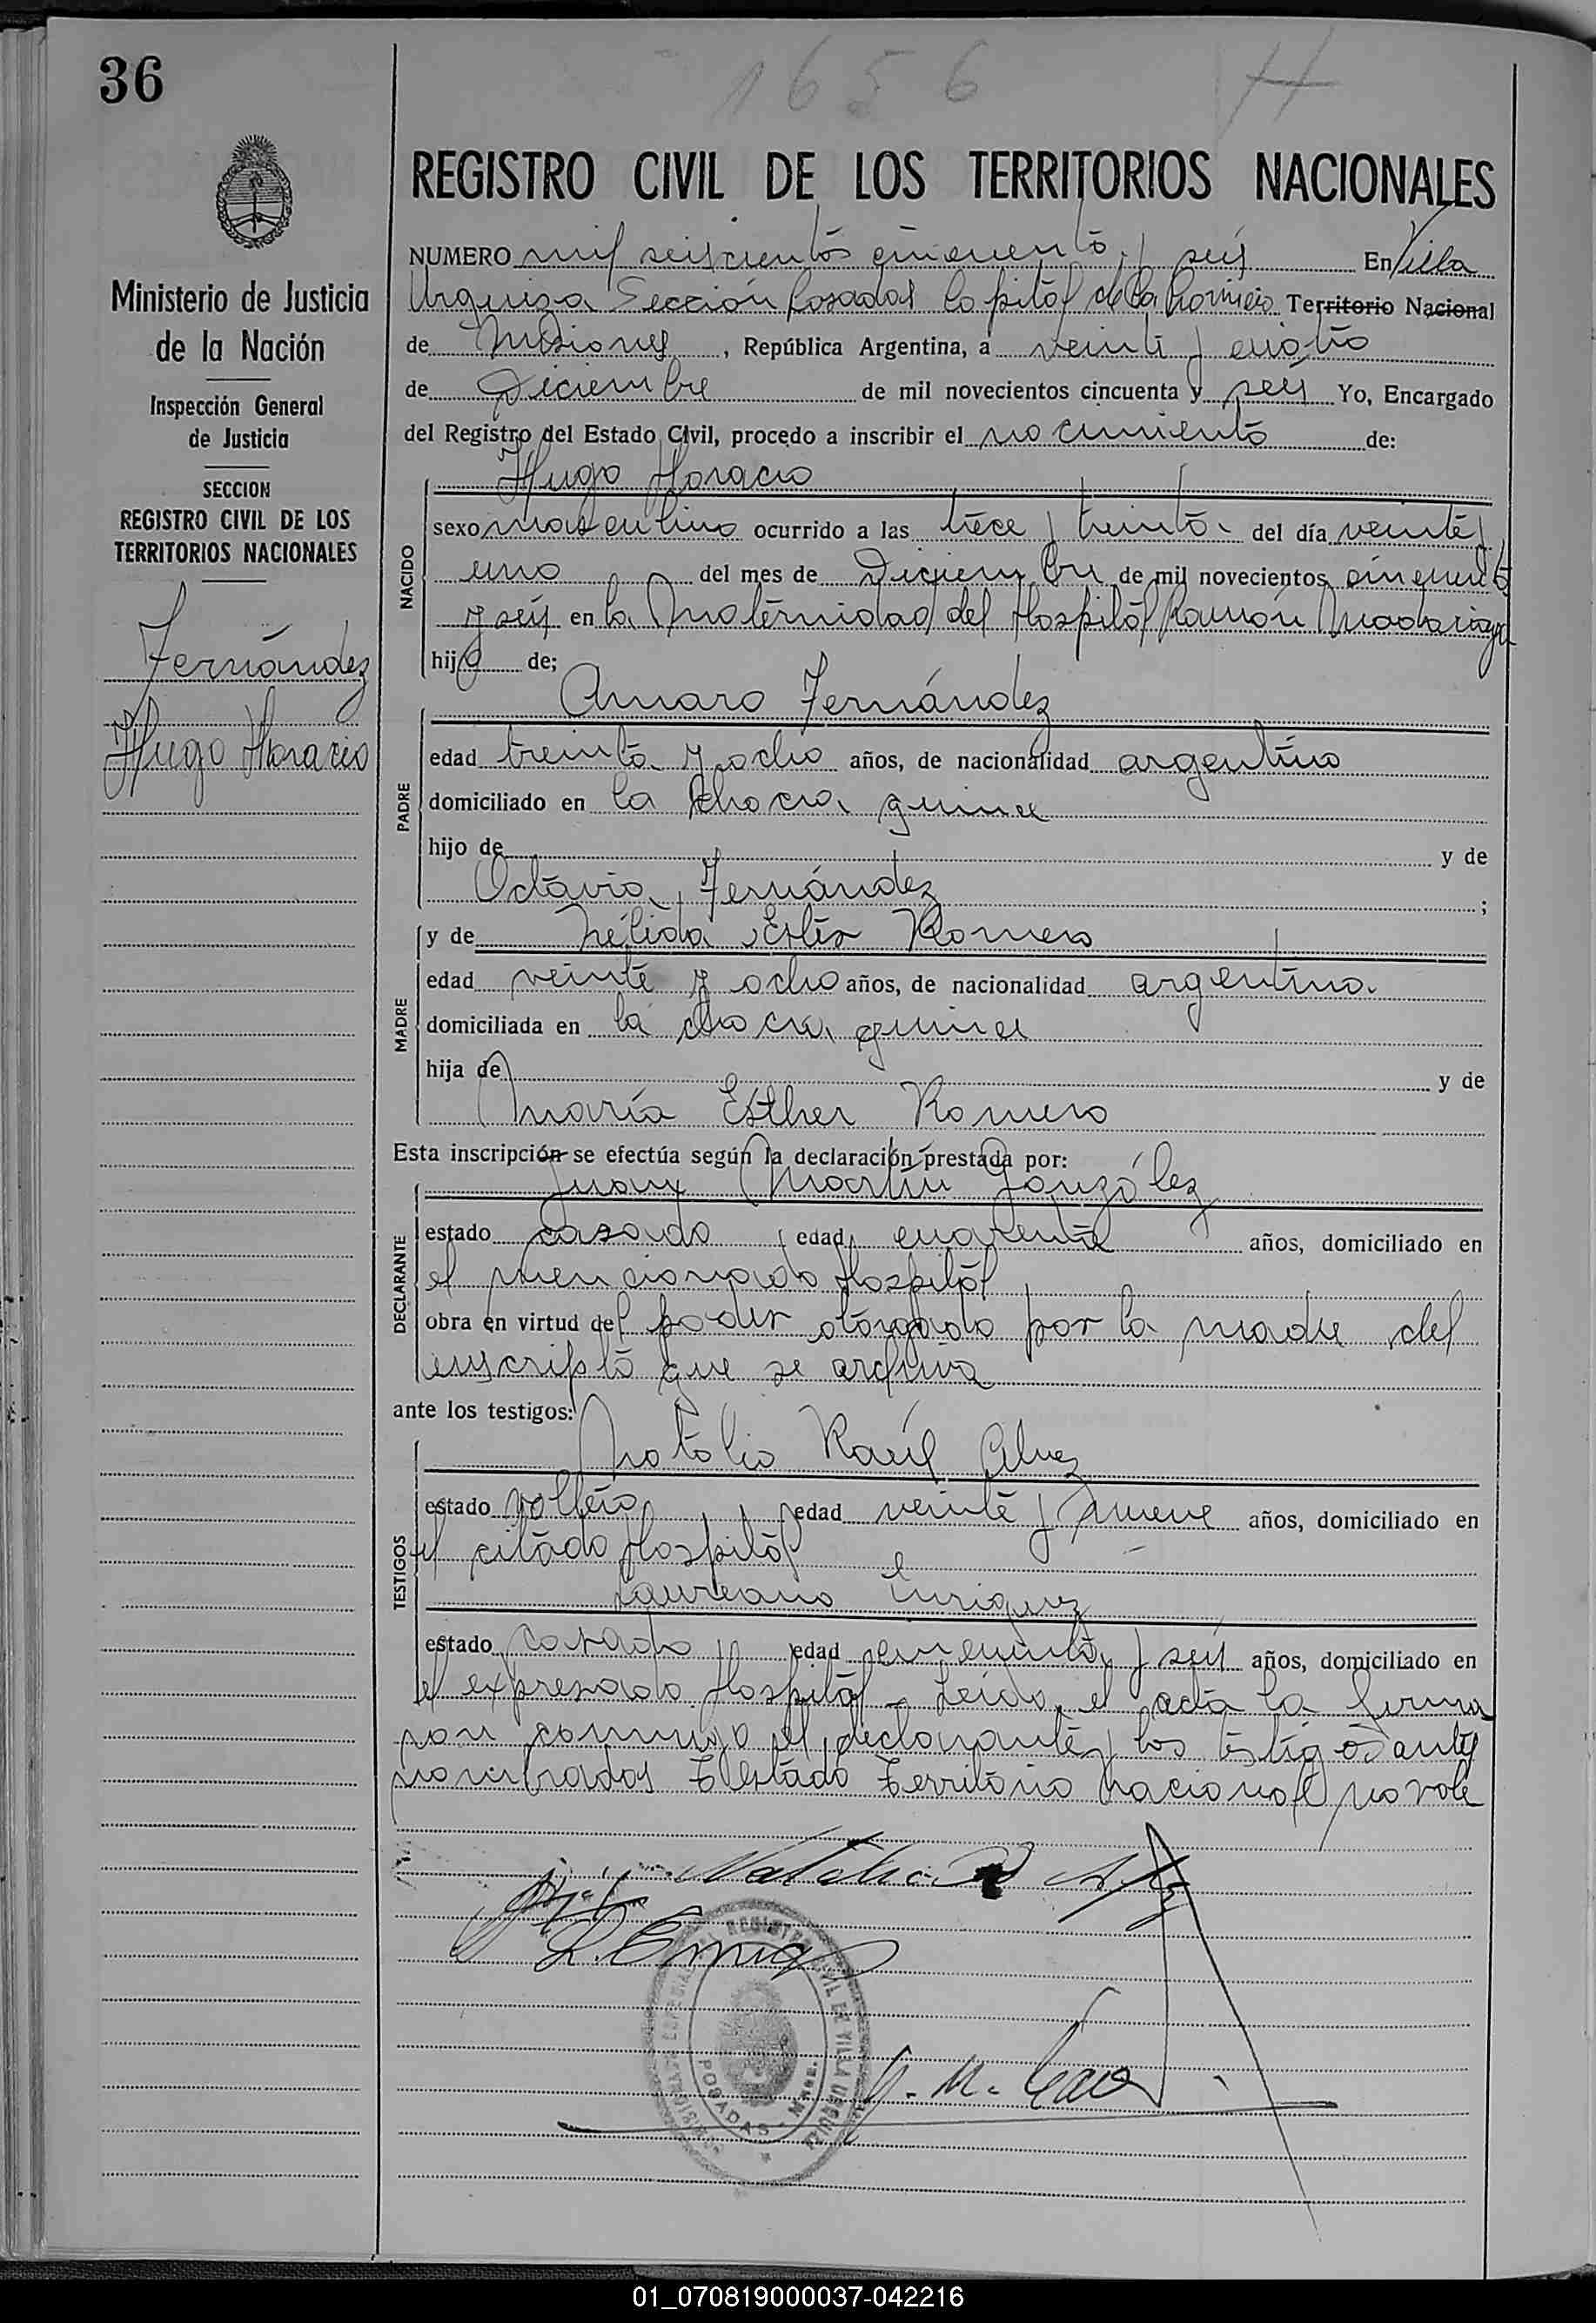 36
1656 H
REGISTRO CIVIL DE LOS TERRITORIOS NACIONALES
Ministerio de Justicia
de la Nación
Inspección General
de Justicia
SECCION
REGISTRO CIVIL DE LOS
TERRITORIOS NACIONALES
Fernández
Hugo Horacio
NUMERO mil seiscientos cincuenta y seis En Villa
Urquiza Sección Posadas Capital de la Provincia Territorio Nacional
de Misiones, República Argentina, a veinte y cuatro
de Diciembre de mil novecientos cincuenta y seis Yo, Encargado
del Registro del Estado Civil, procedo a inscribir el nacimiento de:
Hugo Horacio
NACIDO
sexo masculino ocurrido a las trece y treinta del día veinte y
uno del mes de Diciembre de mil novecientos cincuenta
y seis en la Maternidad del Hospital Ramón Madariaga
hijo de;
PADRE
Amaro Fernández
edad treinta y ocho años, de nacionalidad argentino
domiciliado en la chacra quince
hijo de y de
Octavio Fernández ;
MADRE
y de Nélida Ester Romero
edad veinte y ocho años, de nacionalidad argentina
domiciliada en la chacra quince
hija de y de
María Esther Romero
Esta inscripción se efectúa según la declaración prestada por:
DECLARANTE
Juan Martín González
estado casado edad cuarenta años, domiciliado en
el mencionado Hospital
obra en virtud del poder otorgado por la madre del
inscripto que se archiva
ante los testigos:
TESTIGOS
Natalio Raúl Alvez
estado soltero edad veinte y nueve años, domiciliado en
el citado Hospital
Laureano Enriquez
estado casado edad cincuenta y seis años, domiciliado en
el expresado Hospital - Leída el acta la firma
ron conmigo el declarante y los testigos antes
nombrados Testado Territorio Nacional no vale
Natalio R Alvez
L. Enriq
REGISTRO CIVIL DE VILLA URQUIZA
POSADAS - Mnes.
01_070819000037-042216